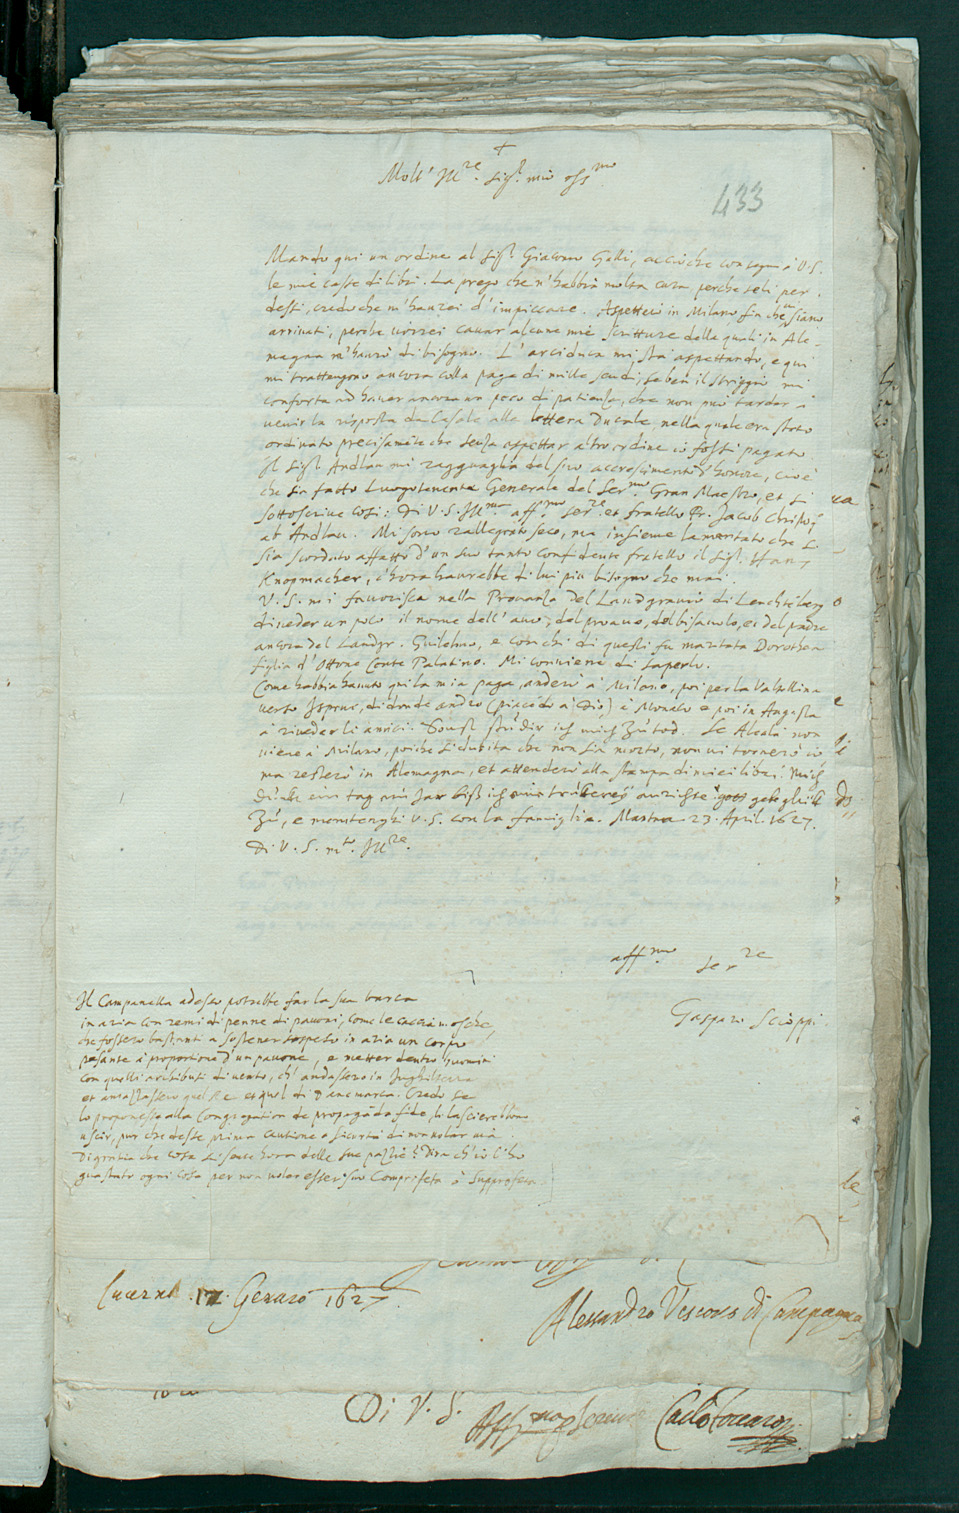 +
Molt' Ill.re Sig.r mio oss.mo
433
Mando qui un ordine al Sig.r Giacomo Galli, acciò che consegni à V.S.
le mie casse di libri. La prego che n'habbia molta cura perche se li per-
dessi, credo che m'haurei d'impiccare. Aspetterò in Milano fin che vi siano
arrivati, perche vorrei cavar alcune mie scritture delle quali in Ale-
magna n'haurò di bisogno. L'arciduca mi sta aspettando, e qui
mi trattengono ancora colla paga di mille scudi, se ben il Striggio mi
conforta ad haver ancora un poco di patienza, che non può tardar à
venir la risposta da Casale alla lettera Ducale, nella quale era stato
ordinato precisamẽte che senza aspettar altro ordine io fossi pagato.
Il Sig.r Andlau mi ragguaglia del suo accrescimento d'honore, cioè
che sia fatto Luogotenente Generale del Ser.mo Gran Maestro, et si
sottoscrive cosi: Di V.S. Ill.ma aff.mo ser.re et fratello Fr. Jacob Christoff
ab Andlau. Mi sono rallegrato seco, ma insieme lamentato che si
sia scordato affatto d'un suo tanto confidente fratello il Sig.r Hans
Knopmacher, c'hora haurebbe di lui più bisogno che mai.
V.S. mi favorisca nella Prosapia del Landgravio di Leuchtẽberg
di veder un poco il nome dell'avo, del proavo, del bisavolo, et del padre
ancora del Landgr. Guilelmo, e con chi di questi fu maritata Dorothea
figlia d'Ottone Conte Palatino. Mi conviene di saperlo.
Come habbia havuto qui la mia paga, anderò à Milano, poi per la Valtellina
verso Ispruc, di donde andrò (piacẽdo à Dio) à Monaco e poi in Augusta
à riveder li amici. Sonst studir ich mich zu tod. Se Alcalà non
viene à Milano, poiche si dubita che non sia morto, non vi tornerò io
ma resterò in Alemagna, et attenderò alla stampa di miei libri. Mich
dunkt ein tag ein Jar biß ich ein anrichte gott geb glück
zu, e mantenghi V.S. con la famiglia. Mantua 23. April. 1627.
Di V.S. m.to Ill.re
aff.mo ser.re
Gasparo Scioppi.
Il Campanella adesso potrebbe far la sua barca
in aria con remi di penne di pavoni, come le caccia mosche,
che fossero bastanti a sostener sospeso in aria un corpo
pesante à proportione d'un pavone, e metter dentro huomini
con quelli archibusi di vento, ch'andassero in Inghilterra
et amazzassero quel Re et quel di Danemarca. Credo se
lo proponesse alla Congregation de propagãda fide, li lascierebbono
uscir, pur che desse prima cautione e sicurtà di non volar via.
Di gratia che cosa si sente hora delle sue pazzie? Dirà ch'io li ho
guastato ogni cosa per non voler esser suo Comprofeta ò Supprofeta.
Lucerna. 17. Genaro 1627.
Alessandro Vescovo di Campagna
Di V. S.
Aff.mo per servire Carlo